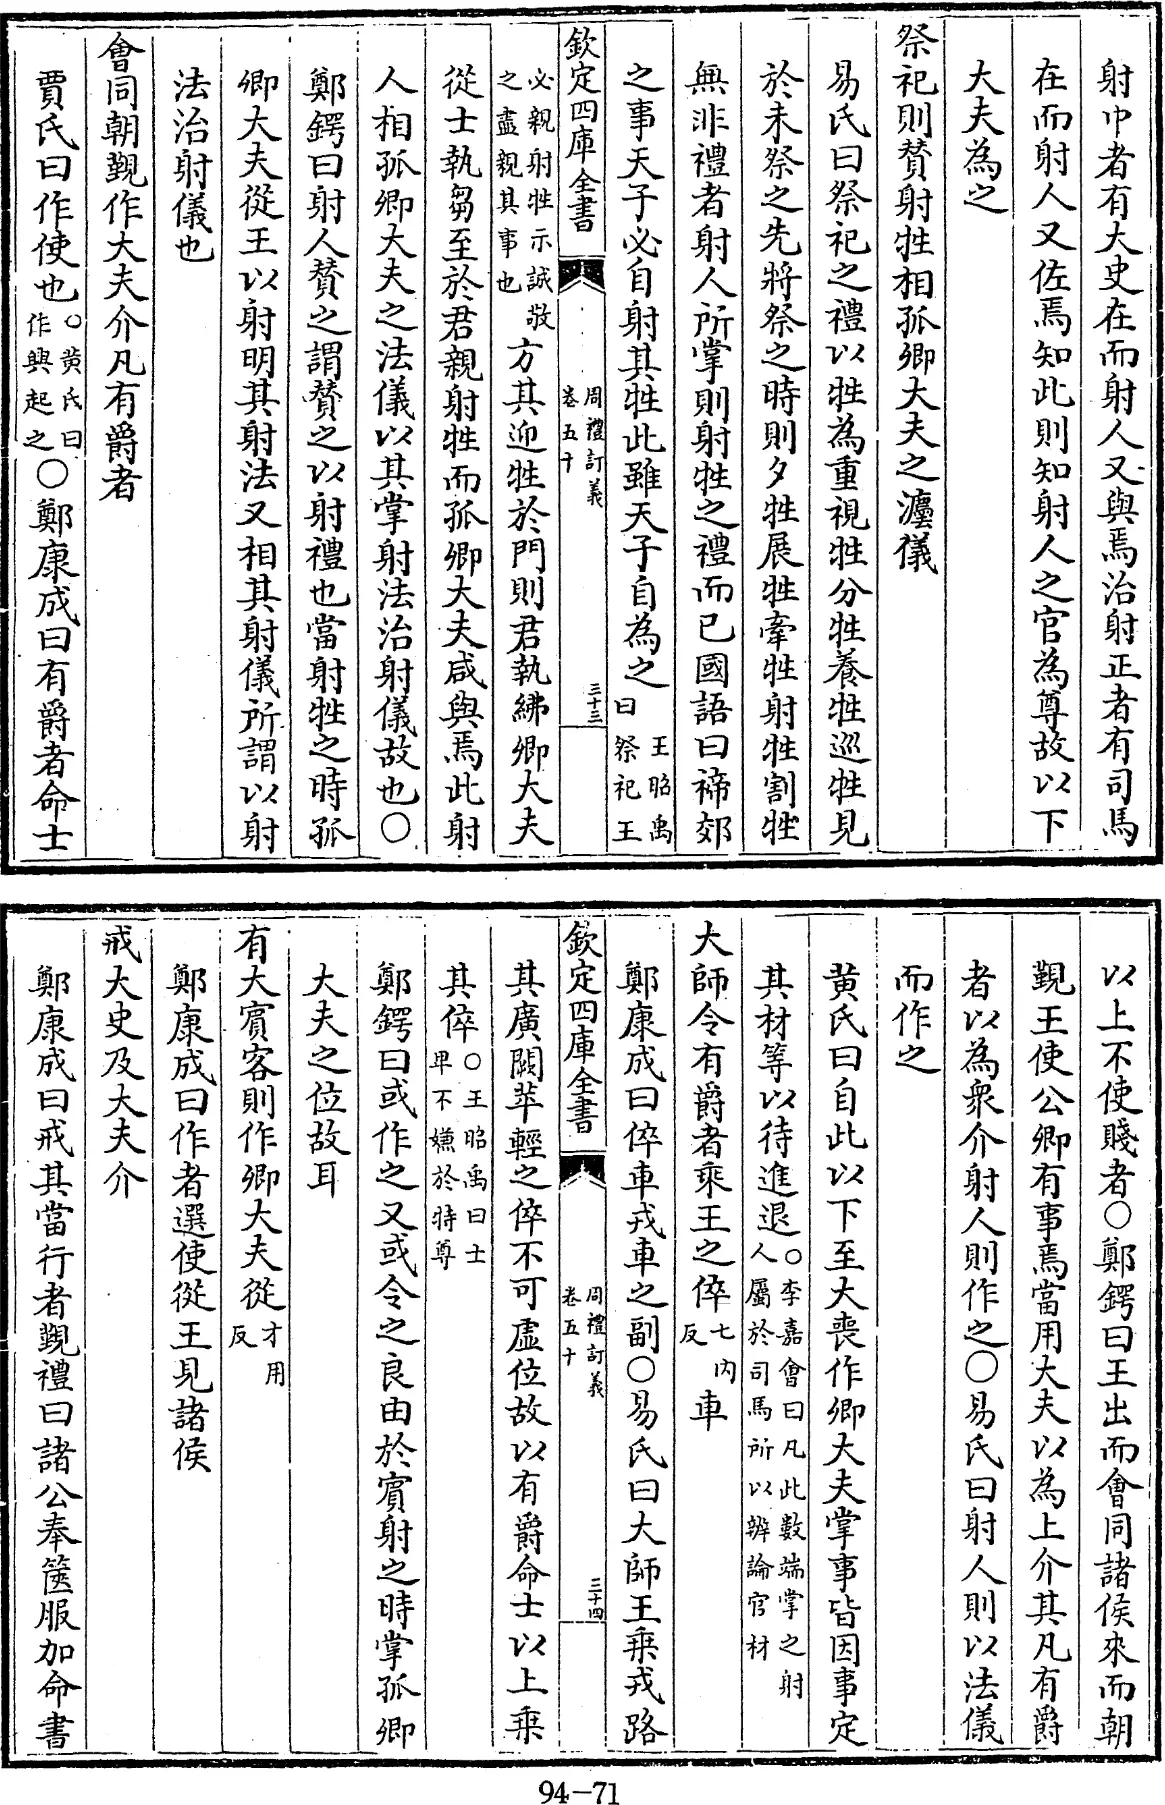 射中者有大史在而射人又與焉治射正者有司馬
在而射人又佐焉知此則知射人之官為尊故以下
大夫為之
祭祀則賛射牲相孤卿大夫之灋儀
易氏曰祭祀之禮以牲為重視牲分牲養牲巡牲見
於未祭之先將祭之時則夕牲展牲牽牲射牲割牲
無非禮者射人所掌則射牲之禮而已國語曰禘郊
之事天子必自射其牲此雖天子自為之王昭禹曰祭祀王
欽定四庫全書
周禮訂義
卷五十
三十三
必親射牲示誠敬之盡親其事也方其迎牲於門則君執紼卿大夫
從士執芻至於君親射牲而孤卿大夫咸與焉此射
人相孤卿大夫之法儀以其掌射法治射儀故也〇
鄭鍔曰射人賛之謂賛之以射禮也當射牲之時孤
卿大夫從王以射明其射法又相其射儀所謂以射
法治射儀也
會同朝覲作大夫介凡有爵者
賈氏曰作使也〇黄氏曰作興起之〇鄭康成曰有爵者命士
以上不使賤者〇鄭鍔曰王出而會同諸侯來而朝
覲王使公卿有事焉當用大夫以為上介其凡有爵
者以為衆介射人則作之〇易氏曰射人則以法儀
而作之
黄氏曰自此以下至大喪作卿大夫掌事皆因事定
其材等以待進退〇李嘉會曰凡此數端掌之射人屬於司馬所以辨論官材
大師令有爵者乘王之倅七内反車
鄭康成曰倅車戎車之副〇易氏曰大師王乘戎路
欽定四庫全書
周禮訂義
卷五十
三十四
其廣闕苹輕之倅不可虛位故以有爵命士以上乘
其倅〇王昭禹曰士卑不嫌於特尊
鄭鍔曰或作之又或令之良由於賓射之時掌孤卿
大夫之位故耳
有大賓客則作卿大夫從才用反
鄭康成曰作者選使從王見諸侯
戒大史及大夫介
鄭康成曰戒其當行者覲禮曰諸公奉篋服加命書
94-71